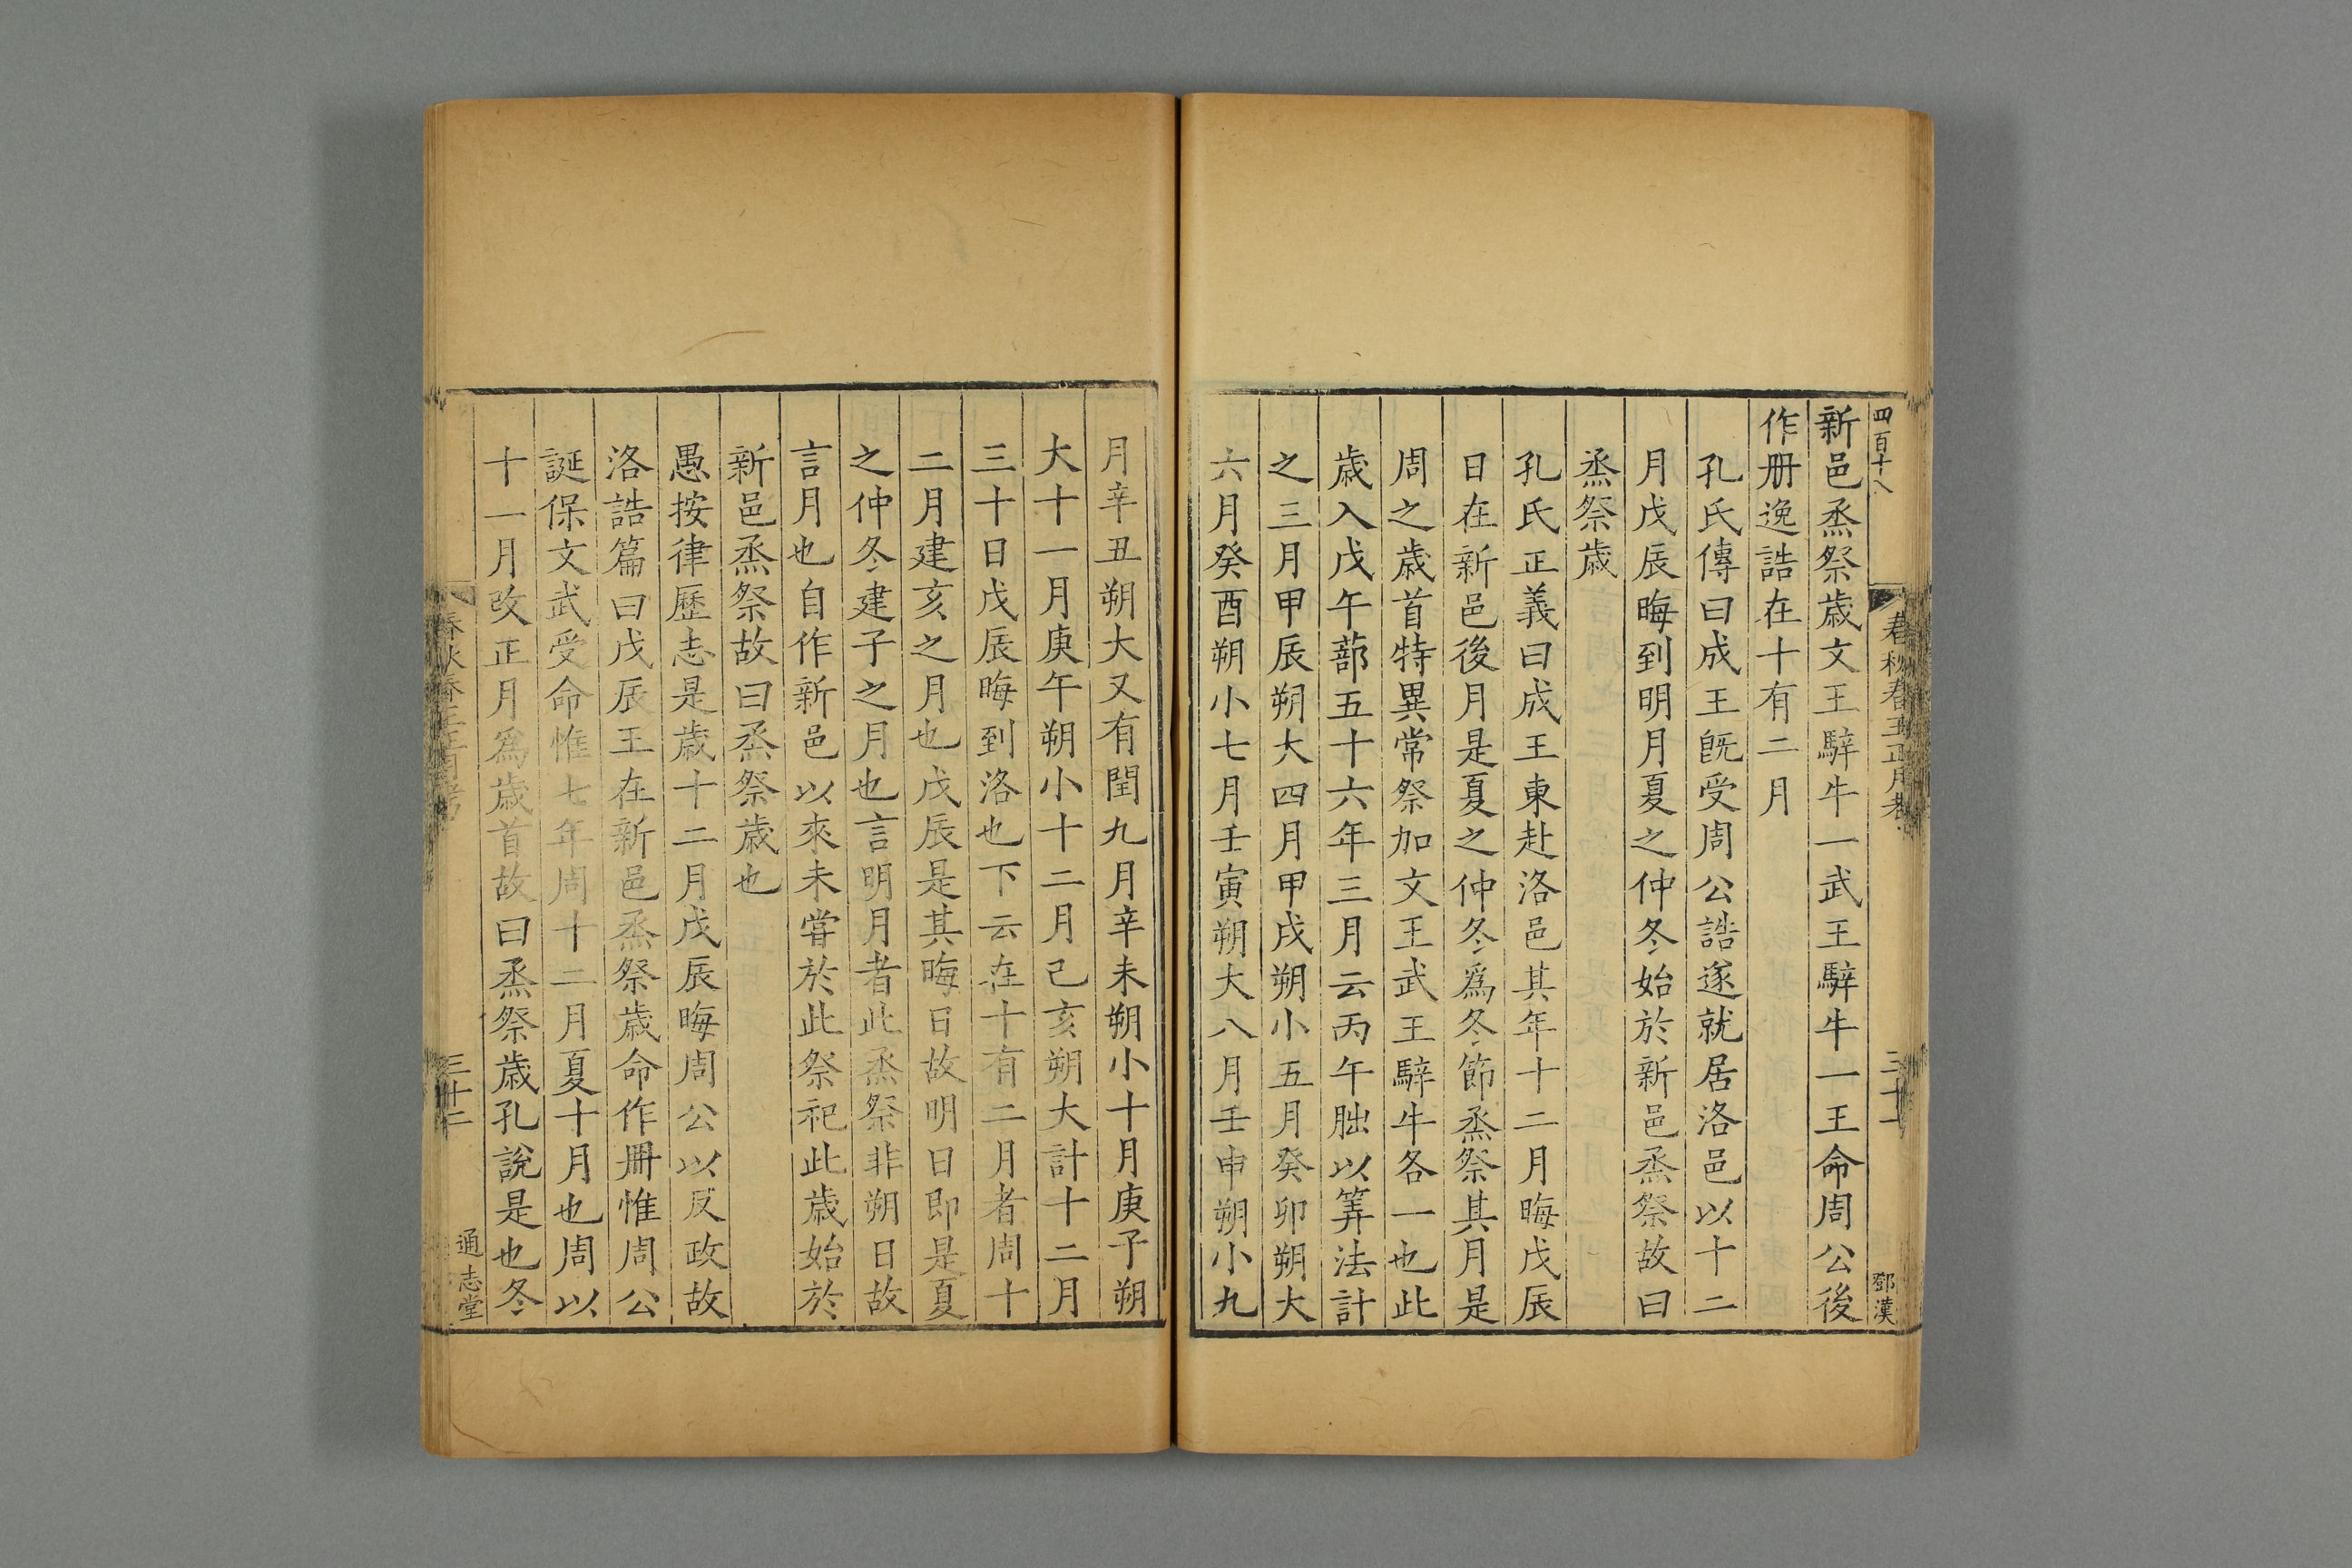 四百十八
春秋春王正月考
三十一
鄧漢
新邑烝祭歲文王騂牛一武王騂牛一王命周公後
作册逸誥在十有二月
孔氏傳曰成王旣受周公誥遂就居洛邑以十二
月戊辰晦到明月夏之仲冬始於新邑烝祭故曰
烝祭歲
孔氏正義曰成王東赴洛邑其年十二月晦戊辰
日在新邑後月是夏之仲冬爲冬節烝祭其月是
周之歲首特異常祭加文王武王騂牛各一也此
歲入戊午蔀五十六年三月云丙午朏以筭法計
之三月甲辰朔大四月甲戌朔小五月癸卯朔大
六月癸酉朔小七月壬寅朔大八月壬申朔小九
月辛丑朔大又有閏九月辛未朔小十月庚子朔
大十一月庚午朔小十二月己亥朔大計十二月
三十日戊辰晦到洛也下云在十有二月者周十
二月建亥之月也戊辰是其晦日故明日即是夏
之仲冬建子之月也言明月者此烝祭非朔日故
言月也自作新邑以來未甞於此祭祀此歲始於
新邑烝祭故曰烝祭歲也
愚按律歷志是歲十二月戊辰晦周公以反政故
洛誥篇曰戊辰王在新邑烝祭歲命作册惟周公
誕保文武受命惟七年周十二月夏十月也周以
十一月改正月爲歲首故曰烝祭歲孔說是也冬
春秋春王正月考
三十二
通志堂